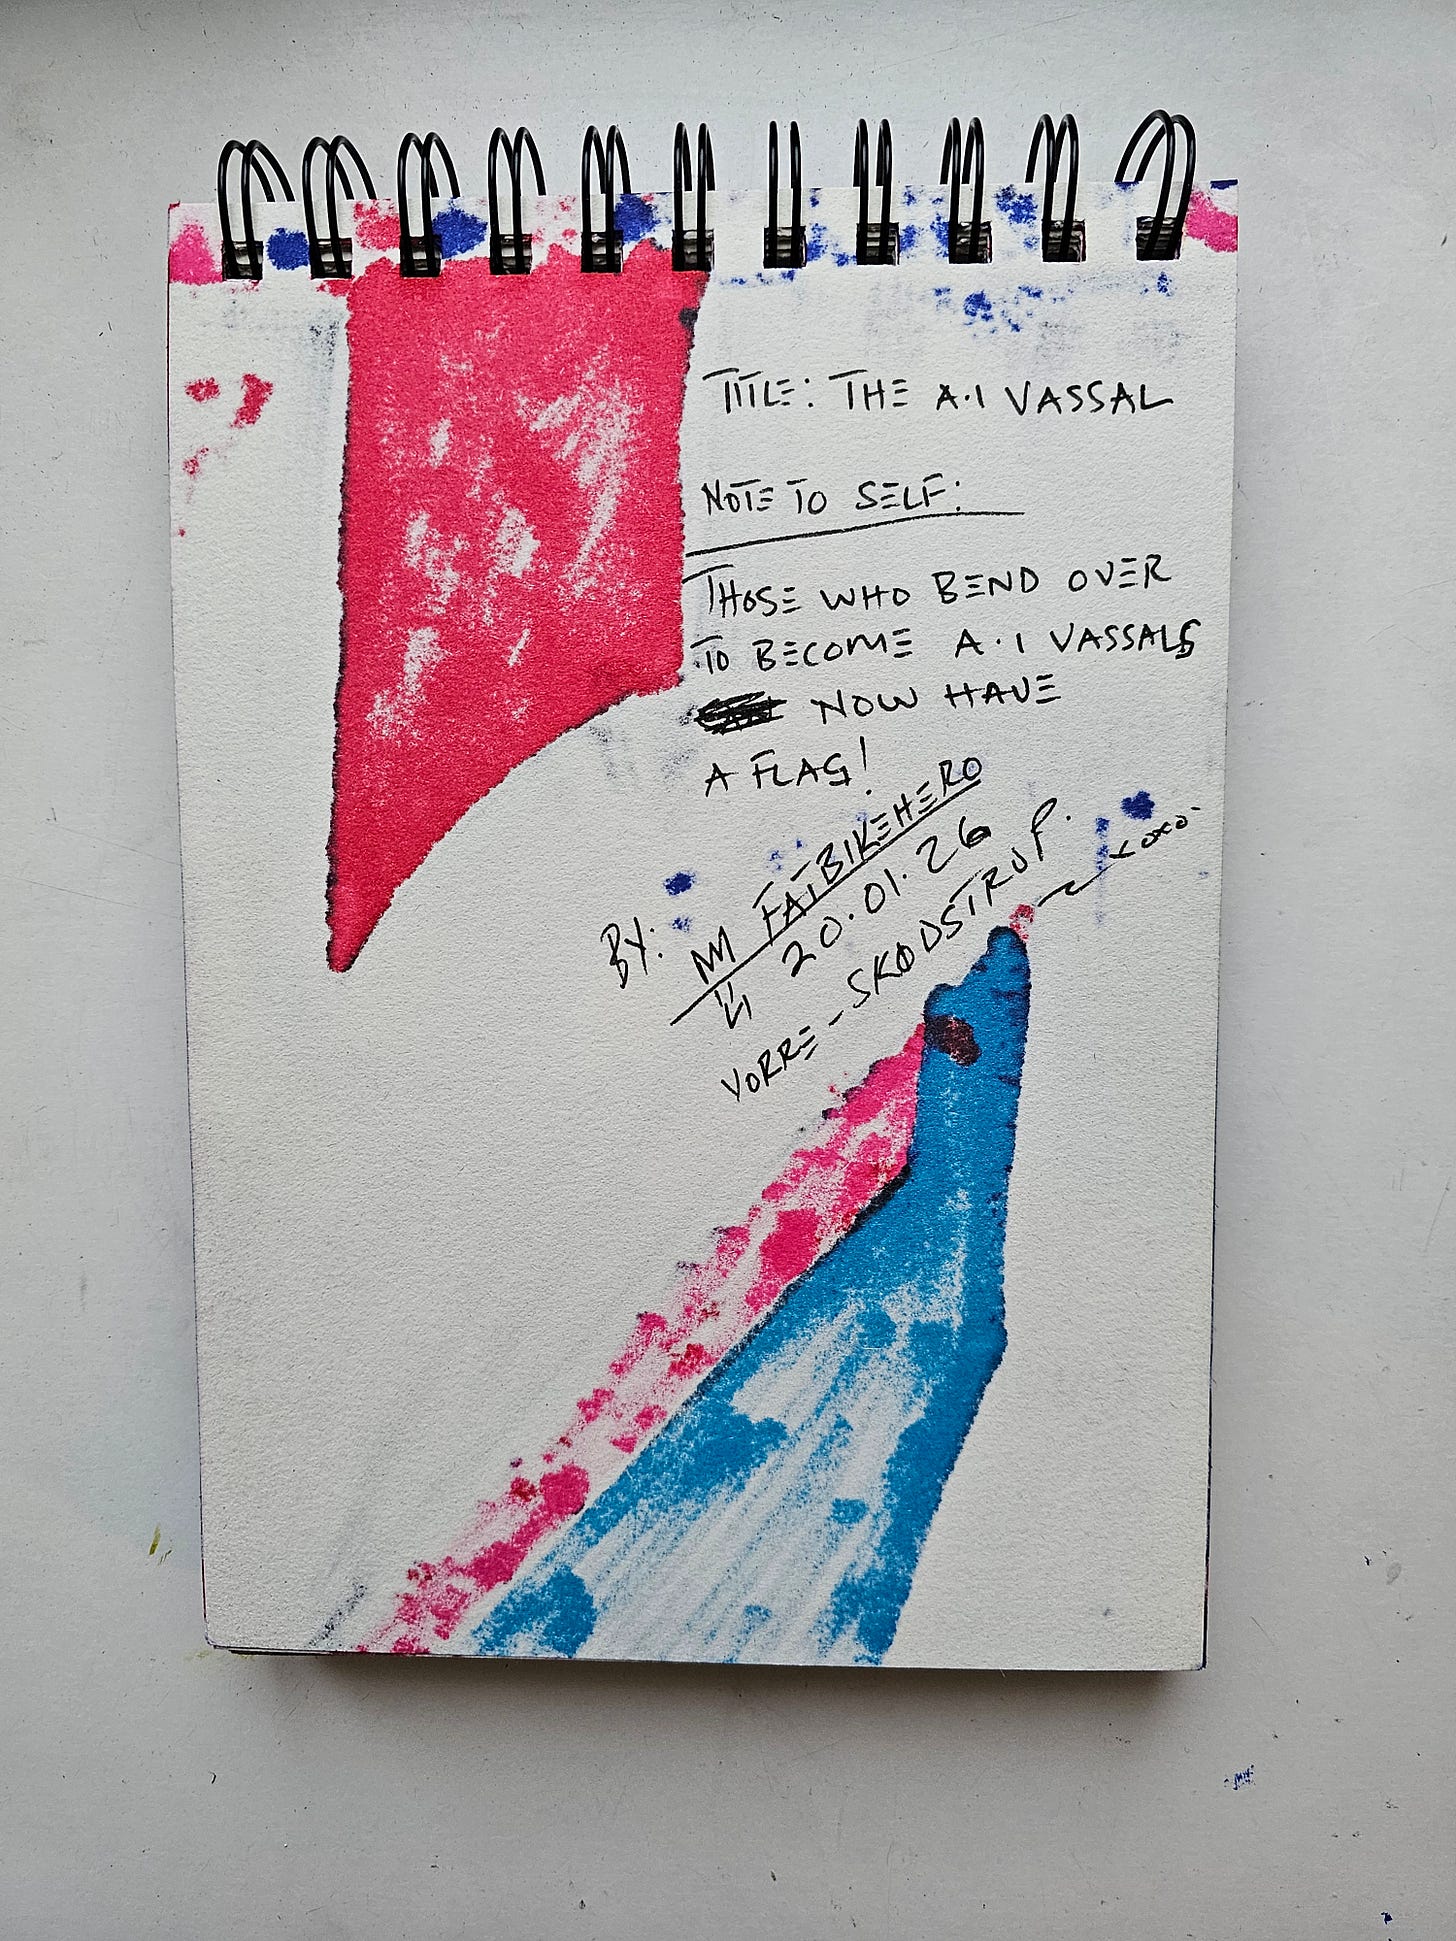 TITLE: THE A.I VASSAL
NOTE TO SELF:
THOSE WHO BEND OVER
TO BECOME A.I VASSALS
NOW HAVE
A FLAG!
BY: FATBIKEHERO
20.01.26
VORRE-SKØDSTRUP.
xoxo